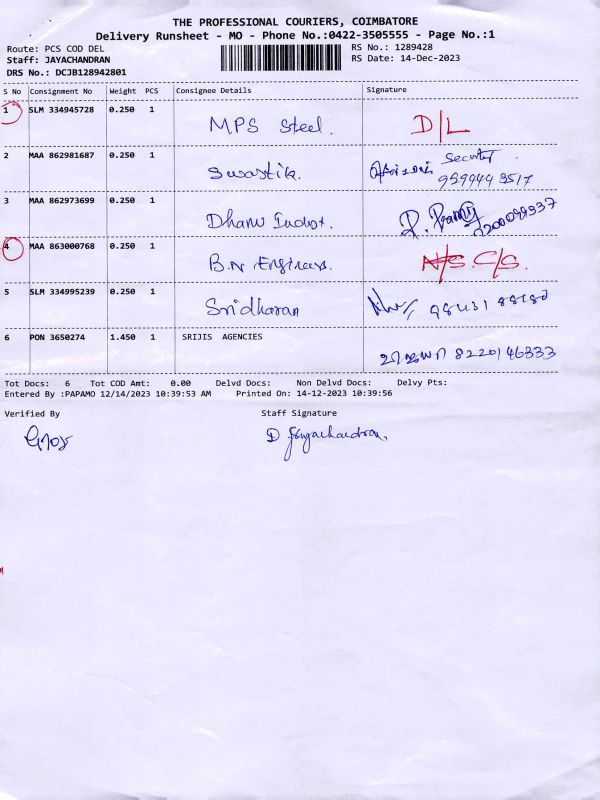 THE PROFESSIONAL COURIERS, COIMBATORE
Delivery Runsheet - MO - Phone No.:0422-3505555 - Page No.:1
Route: PCS COD DEL
Staff: JAYACHANDRAN
DRS No.: DCJB128942801
RS No.: 1289428
RS Date: 14-Dec-2023
S No Consignment No Weight PCS Consignee Details Signature
1 SLM 334945728 0.250 1 MPS Steel. D/L
2 MAA 862981687 0.250 1 Swastik. Security
3 MAA 862973699 0.250 1 Dhanu Indust.
4 MAA 863000768 0.250 1 B.N Engineers. N/S. C/S.
5 SLM 334995239 0.250 1 Sridharan
6 PON 3650274 1.450 1 SRIJIS AGENCIES 8220146333
Tot Docs: 6 Tot COD Amt: 0.00 Delvd Docs: Non Delvd Docs: Delvy Pts:
Entered By :PAPAMO 12/14/2023 10:39:53 AM Printed On: 14-12-2023 10:39:56
Verified By Staff Signature